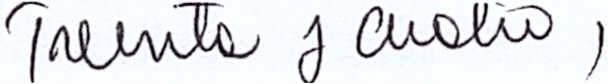 Treinta y cuatro,